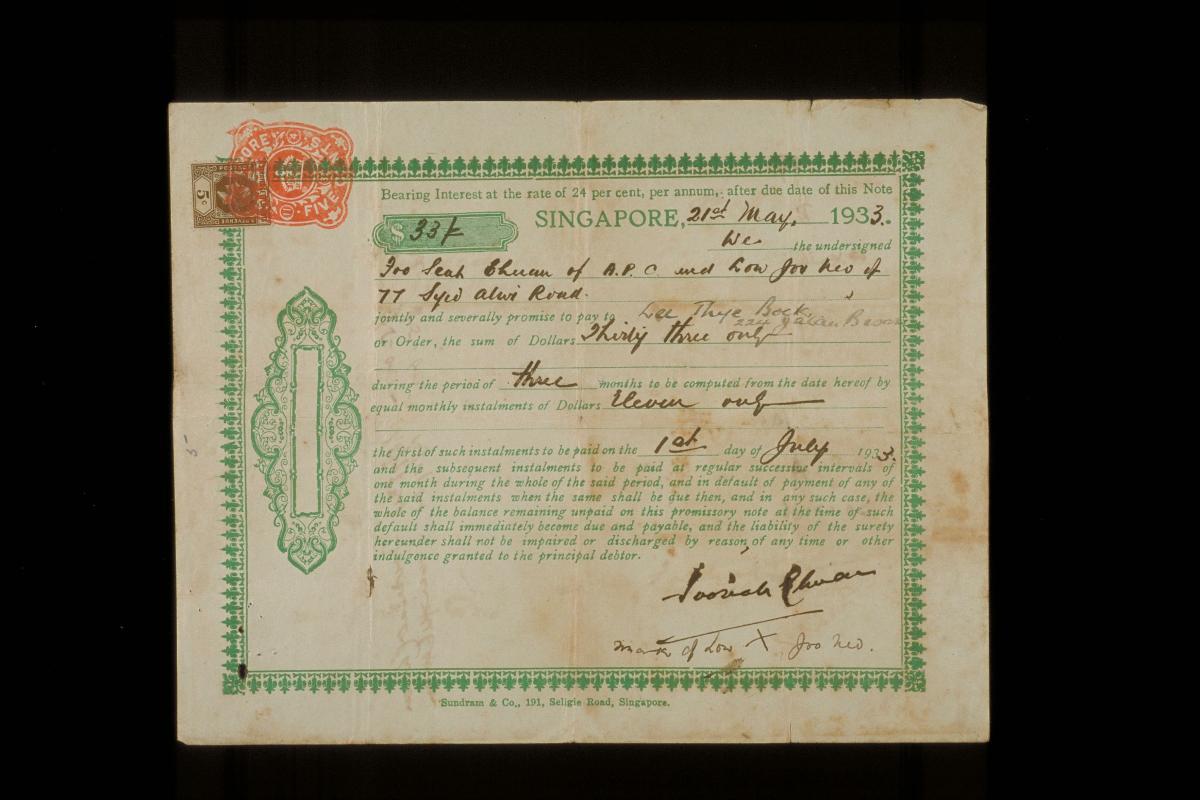 Bearing Interest at the rate of 24 per cent, per annum, after due date of this Note
$ 33/-
SINGAPORE, 21st May, 1933.
We the undersigned
Soo Seah Chuan of A.P.C. and Low Joo Neo of
77 Syed Alwi Road.
jointly and severally promise to pay to Lee Thye Bock,
224 Jalan
or Order, the sum of Dollars Thirty three only
during the period of three months to be computed from the date hereof by
equal monthly instalments of Dollars Eleven only
the first of such instalments to be paid on the 1st day of July 1933.
and the subsequent instalments to be paid at regular successive intervals of
one month during the whole of the said period, and in default of payment of any of
the said instalments when the same shall be due then, and in any such case, the
whole of the balance remaining unpaid on this promissory note at the time of such
default shall immediately become due and payable, and the liability of the surety
hereunder shall not be impaired or discharged by reason of any time or other
indulgence granted to the principal debtor.
Soo Seah Chuan
Mark of Low X Joo Neo.
Sundram & Co., 191, Seligie Road, Singapore.
ORE STTS
FIVE
5 c